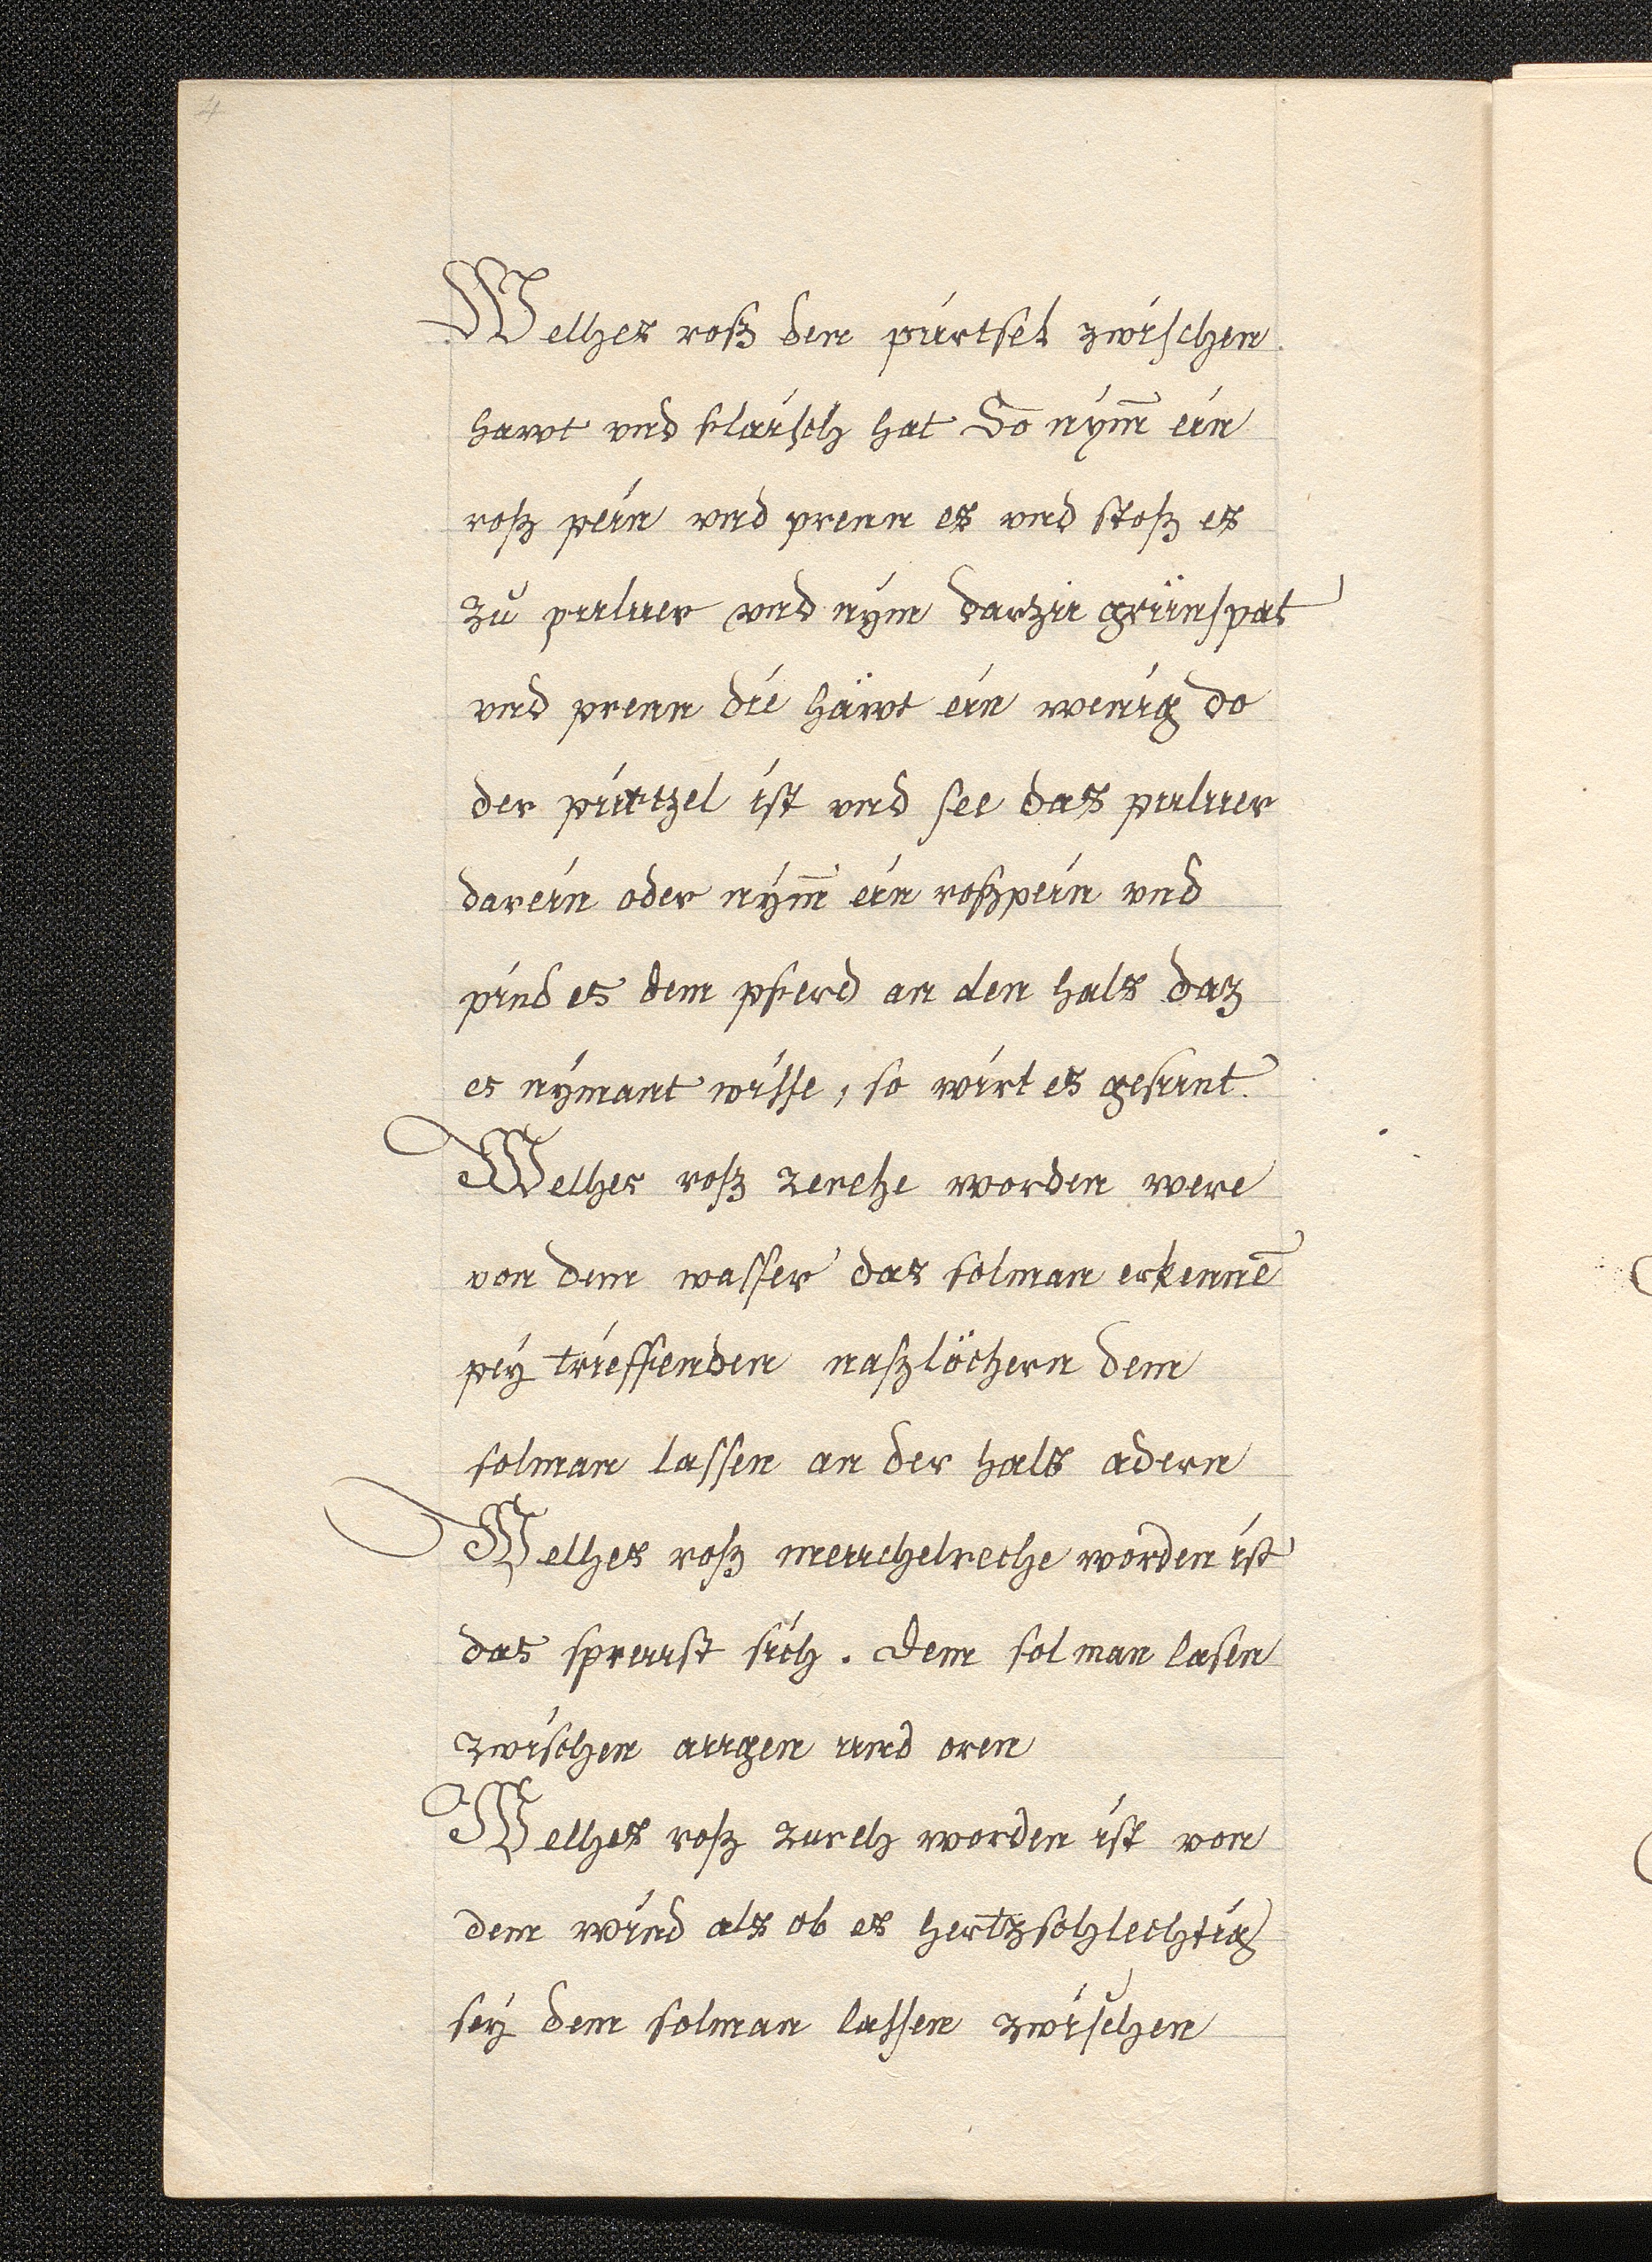 4
Welhes roß den pürtsel zwischen
hawt vnd flaisch hat So nym̄ ein
roß pein vnd prenn es vnd stoß es
zŭ puluer vnd nym darzu grünspat
vnd prenn die häwt ein wenig do
der purtzel ist vnd see das puluer
darein oder nym̄ ein roßpein vnd
pind es dem pferd an den hals daz
es nymant wisse, so wirt es gesunt.
Welhes roß zerehe worden were
von dem wasser das solman erkennē
pey trieffenden naszlöchern dem
solman lassen an der hals adern
Welhes roß meuchelreche worden ist
das spreust sich. Dem sol man lasen
zwischen augen und oren
Welhes roß zureh worden ist von
dem wind als ob es hertzschlechtig
sey dem solman lassen zwischen